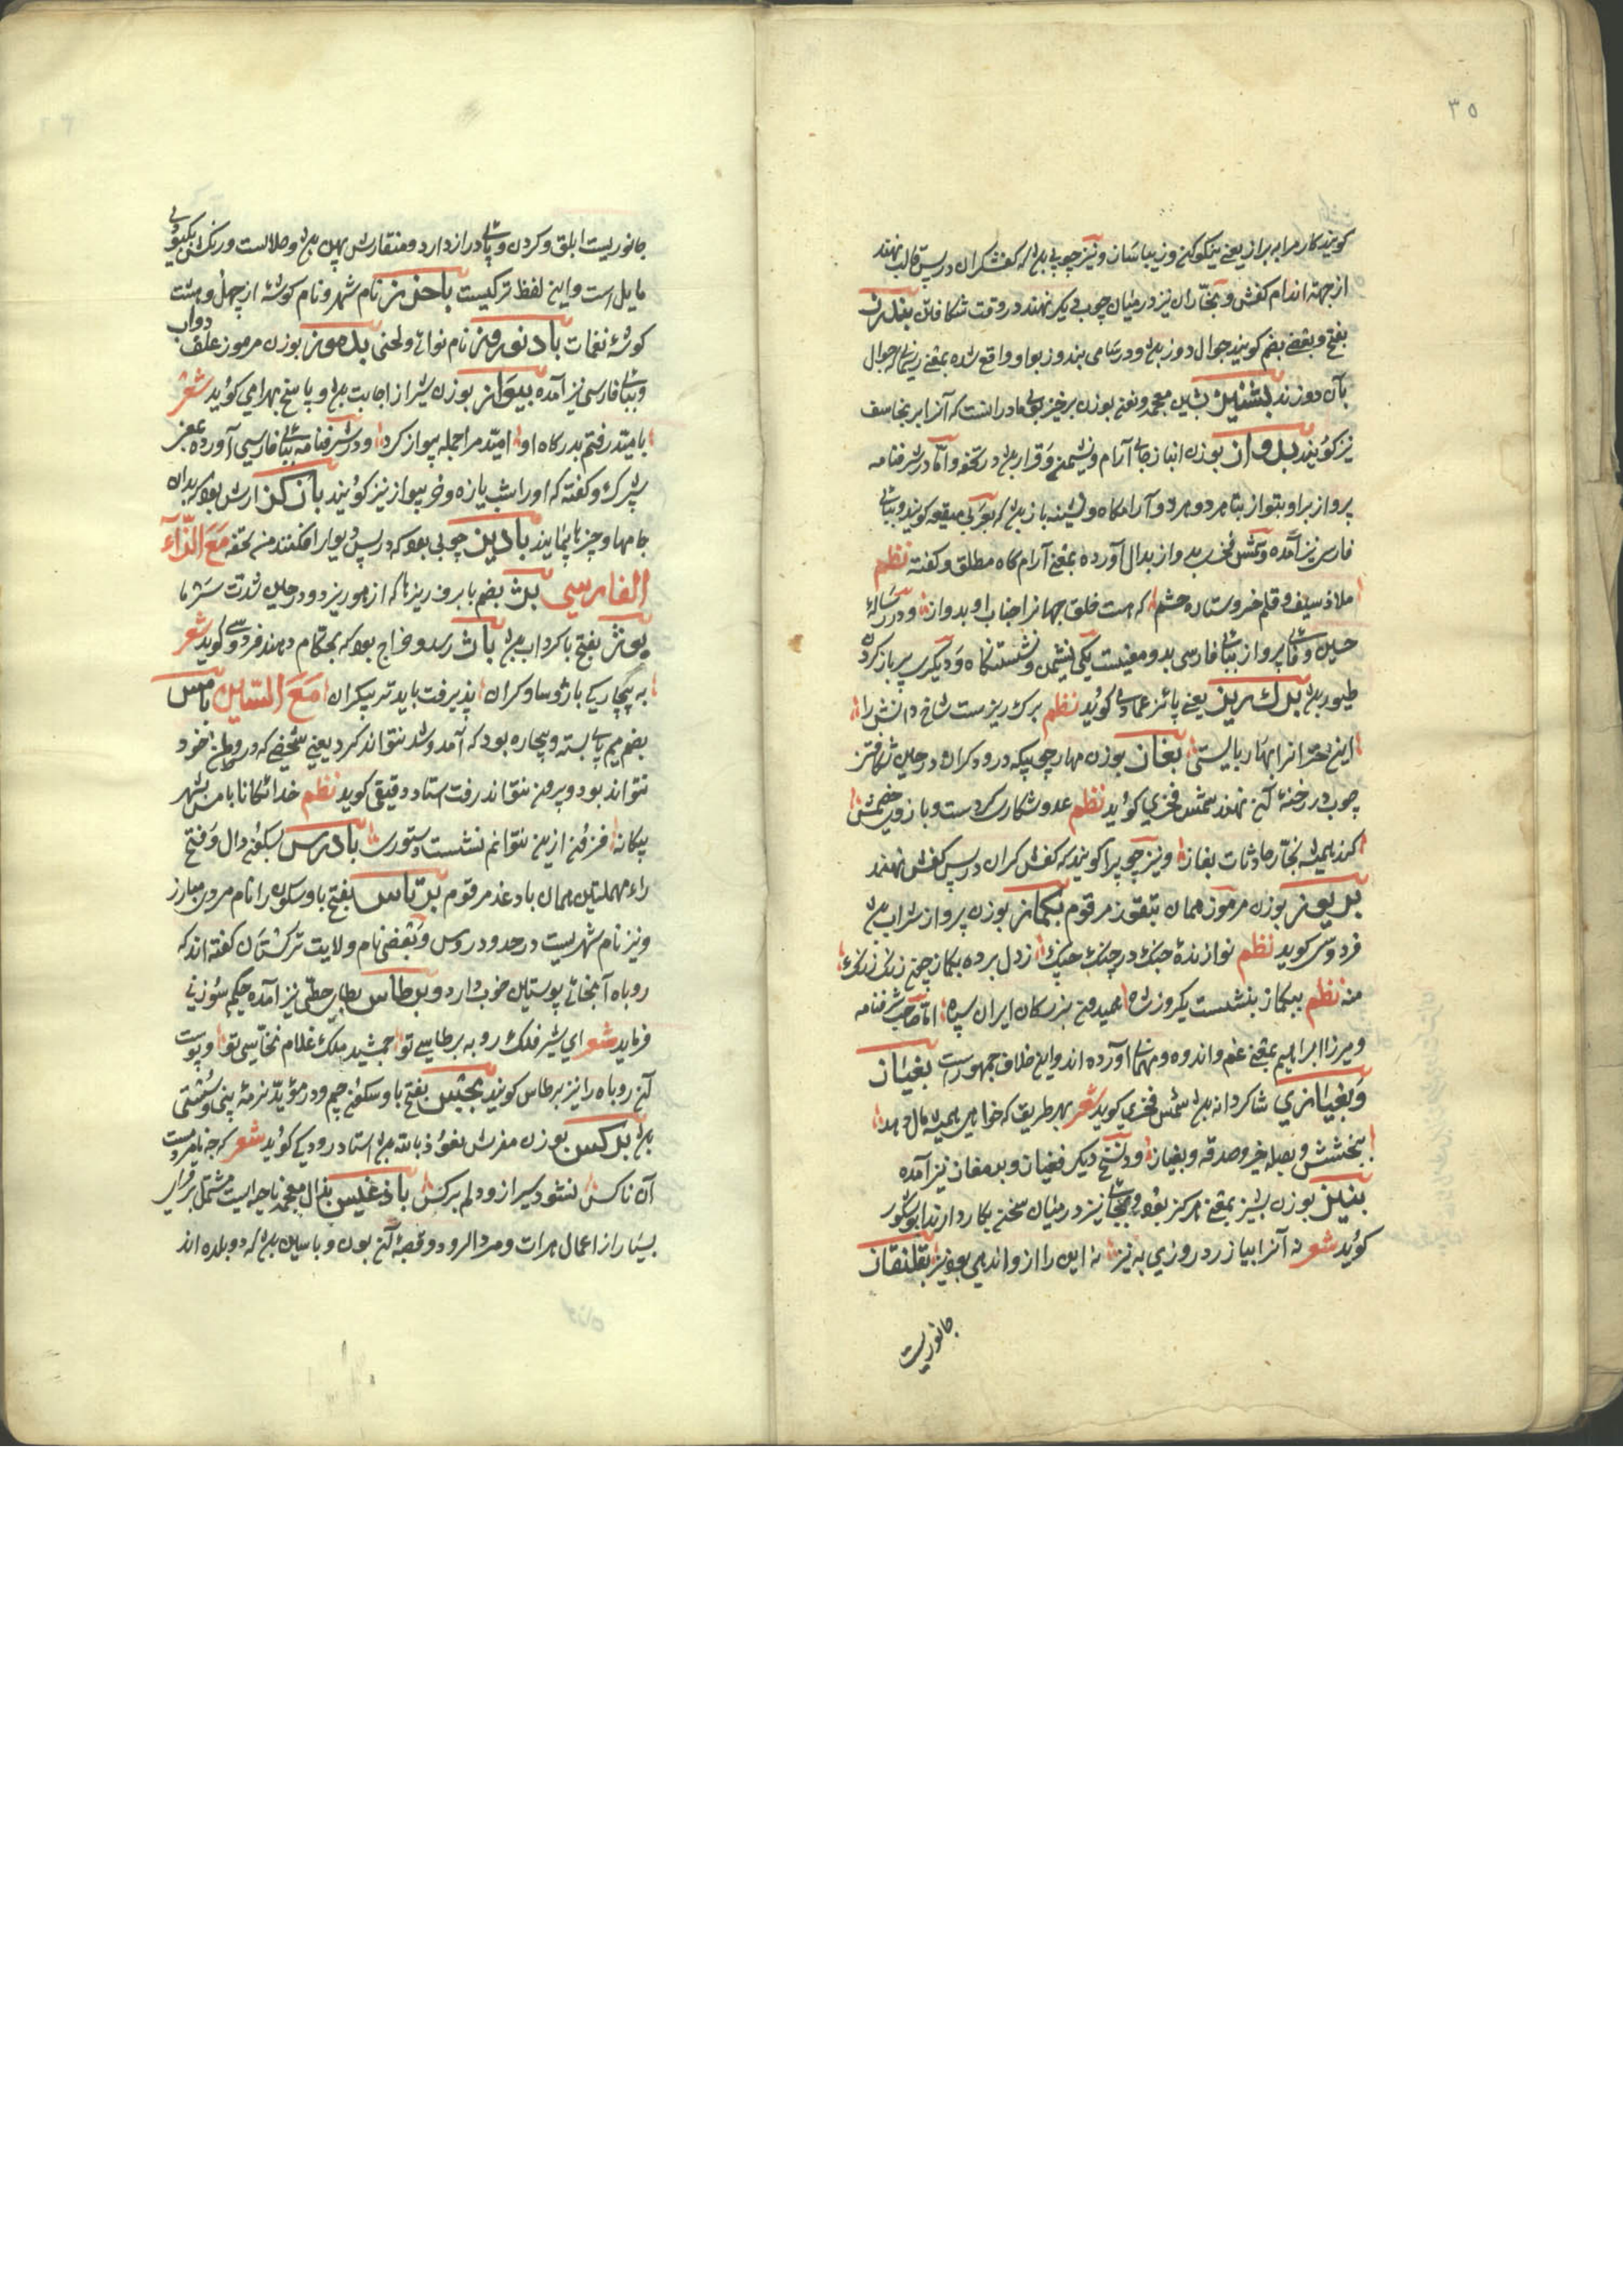 ۳۵
کویند کار مرا به براز یعنی نیکو کن و زیبا ساز و نیز چوبی باشد که کفشکران در پس قالب نهند
از جهة اندام کفش و نجاران نیز در میان چوب دیکر نهند در وقت شکافتن
بفتح و بعضی بضم کویند جوال دوز و در سامی بندوز بواو واقع شده بمعنی ریسمان جوال
بآن دوزند بشین معجمه ونون بوزن برخیز بوی مادرانست که آنرا برنجاسف
نیز کویند بدواز بوزن انباز جای آرام و نشیمن و قرار در تحفه و اما در شرفنامه
پرواز براو بتواز بتا هر دو آرامکاه و نشیمنه باز که بعربی میقعه کویند و ببای
فارسی نیز آمده و شمس فخری بدواز بدال آورده بمعنی آرام کاه مطلق و کفته نظم
ملاذ سیف و قلم خسرو ستاره حشم که هست خلق جهانرا جناب او بدواز و در رسالهٔ
حسین وفایی پرواز ببای فارسی بدو معنیست یکی نشیمن و نشستنکاه و دیکری پر باز کردن
طیور برک ریز یعنی پائیز عمادی کوید نظم برک ریزست شاخ دانش را
این خزانرا بهار بایستی بغاز بوزن چوبیکه درودکران در حین شکافتن
چوب در رخنهٔ آن نهند شمس فخری کوید نظم عدو شکار
کند همیشه نجار حادثات بغاز و نیز چوبیرا کویند که کفش کران در پس کفش نهند
بوزن مرموز همان بتفوز مرقوم بکماز بوزن پرواز شراب
فردوسی کوید نظم نوازندهٔ چنک در چنک چنک ز دل برده بکماز چون زنک زنک
منه نظم ببکماز بنشست یکروز شاه همیدون بزرکان ایران سپاه اما صاحب شرفنامه
و میرزا ابراهیم بمعنی غم واندوه و مهمانی آورده اند و این خلاف جمهورست بغیاز
و بغیازی شاکردانه شمس فخری کوید شعر بهر طریق که خواهی همیشه مال دهد
ببخشش و بصله خیر و صدقه و بغیاز و در نسخ دیکر فغیاز و برمغاز نیز آمده
بوزن بشیز بمعنی هرکز و بجای نیز در میان سخن بکار دارند ابو شکور
کوید شعر نه آنرا بیازرد روزی به نیز نه این را از و اندهی بود نیز بقلنقاز
جانوریست
جانوریست ابلق و کردن و پای دراز دارد و منقارش پهن و حلالست و رنکش بکبودی
مایل است و این لفظ ترکیست باخرز نام شهر و نام کوشهٔ از چهل و هشت
کوشهٔ نغمات باد نوروز نام نوائی و لحنی بدموز بوزن مرموز علف دواب
و ببای فارسی نیز آمده بیواز بوزن شیراز اجابت و پاسخ بهرامی کوید شعر
بامید رفتم بدرکاه او امید مرا جمله بیواز کرد و در شرفنامه ببای فارسی آورده بمعنی
شب پرک و کفته که اورا شب یازه و خربیواز نیز کویند بازکز ارش بود که بدان
جامها و چیزها پیمایند بادیز چوبی بود که در پس دیوار افکنند من تحفه مع الزّاء
الفارسی بژ بضم با برف ریزها که از هوا ریزد و در حین شدت سرما
بوژ بفتح با کرداب باژ رسد و خراج بود که بحکام دهند فردوسی کوید شعر
به بیچارکی باژ و ساو کران پذیرفت باید تر بیکران مع السّین بامس
بضم میم پای بسته و بیچاره بود که آمد و شد نتواند کرد یعنی شخصی که در وطن خود
نتواند بود و بیرون نتواند رفت استاد دقیقی کوید نظم خدایکانا بامس بشهر
بیکانه فزون ازین نتوانم نشست دستوری بادرس بسکون دال و فتح
راء مهملتین همان بادغد مرقوم برتاس بفتح با و سکون را نام مردی مبارز
و نیز نام شهریست در حدود روس و بعضی نام ولایت ترکستان کفته اند که
روباه آنجائی پوستین خوب دارد و برطاس بطای حطی نیز آمده حکیم سوزنی
فرماید شعر ای شیر فلک روبه برطاسی تو جمشید ملک غلام نخاسی تو و پوست
آن روباه را نیز برطاس کویند بجش بفتح با و سکون جیم و در مؤید نرمهٔ بینی و سستی
برکس بوزن مفرس نعوذ بالله استاد رودکی کوید شعر کرچه نامردمست
آن ناکس نشود سیر ازو دلم برکس باذغیس بذال معجمه ناحیه ایست مشتمل بر قرای
بسیار از اعمال هرات و مرو الرود و قصبهٔ آن بون و بامیین که دو بلده اند